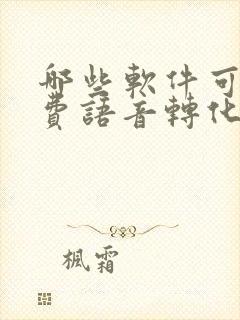 哪些軟件可
費語音轉化
楓霜